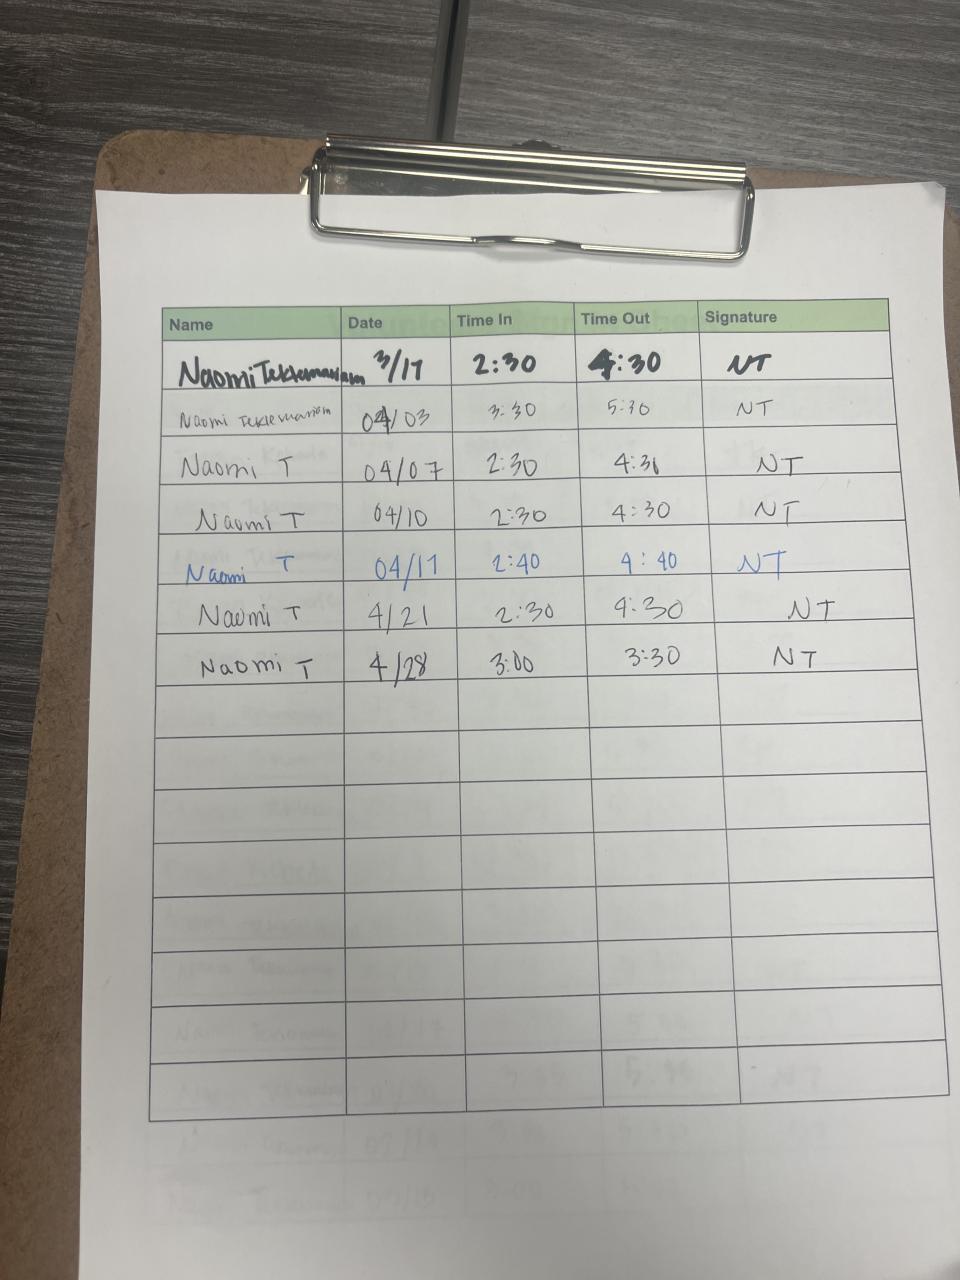 Name Date Time In Time Out Signature
Naomi Teklemariam 3/17 2:30 4:30 NT
Naomi Teklemariam 04/03 3:30 5:30 NT
Naomi T 04/07 2:30 4:31 NT
Naomi T 04/10 2:30 4:30 NT
Naomi T 04/17 2:40 4:40 NT
Naomi T 4/21 2:30 4:30 NT
Naomi T 4/28 3:00 3:30 NT